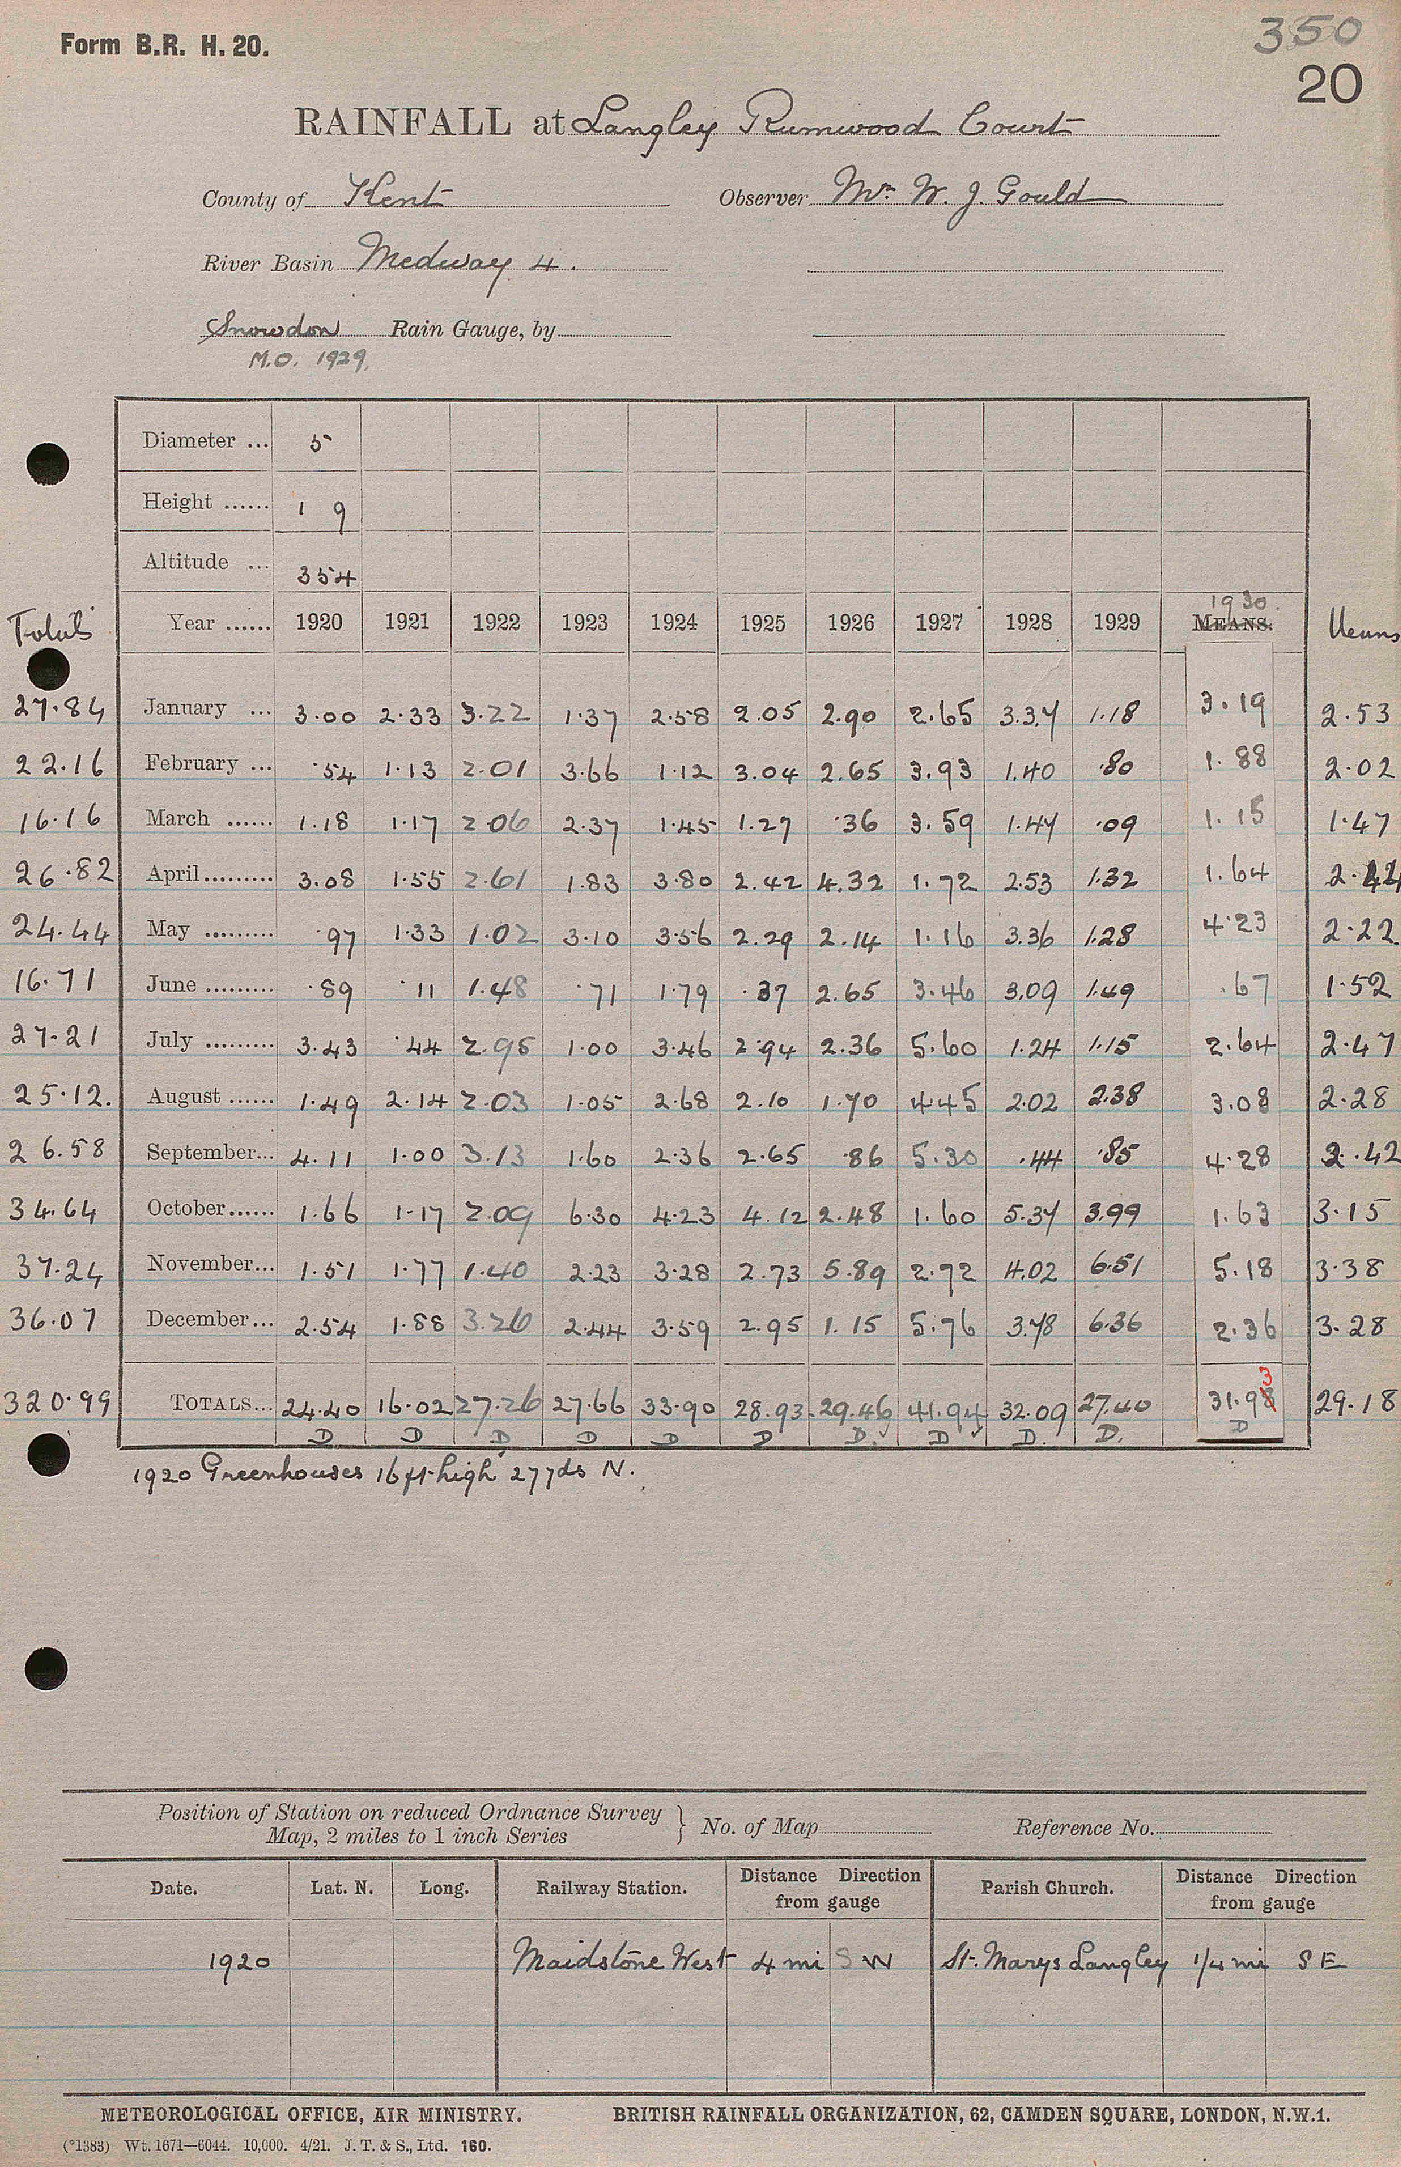 350
Form B.R. H. 20.
20
RAINFALL at Langley Rumwood Court
County of Kent Observer Mr. W. J. Gould
River Basin Medway 4.
Snowdon Rain Gauge, by
M.O. 1929.
Diameter ... 5
Height ...... 1 9
Altitude ... 354
1930.
Totals Year ...... 1920 1921 1922 1923 1924 1925 1926 1927 1928 1929 MEANS. Means
27.84 January ... 3.00 2.33 3.22 1.37 2.58 2.05 2.90 2.65 3.34 1.18 3.19 2.53
22.16 February ... .54 1.13 2.01 3.66 1.12 3.04 2.65 3.93 1.40 .80 1.88 2.02
16.16 March ...... 1.18 1.17 2.06 2.37 1.45 1.27 .36 3.59 1.44 .09 1.15 1.47
26.82 April ......... 3.08 1.55 2.61 1.83 3.80 2.42 4.32 1.72 2.53 1.32 1.64 2.44
24.44 May ......... .97 1.33 1.02 3.10 3.56 2.29 2.14 1.16 3.36 1.28 4.23 2.22
16.71 June ......... .89 .11 1.48 .71 1.79 .37 2.65 3.46 3.09 1.49 .67 1.52
27.21 July ......... 3.43 .44 2.95 1.00 3.46 2.94 2.36 5.60 1.24 1.15 2.64 2.47
25.12. August ...... 1.49 2.14 2.03 1.05 2.68 2.10 1.70 4.45 2.02 2.38 3.08 2.28
26.58 September... 4.11 1.00 3.13 1.60 2.36 2.65 .86 5.30 .44 .85 4.28 2.42
34.64 October...... 1.66 1.17 2.09 6.30 4.23 4.12 2.48 1.60 5.34 3.99 1.63 3.15
37.24 November... 1.51 1.77 1.40 2.23 3.28 2.73 5.89 2.72 4.02 6.51 5.18 3.38
36.07 December... 2.54 1.88 3.26 2.44 3.59 2.95 1.15 5.76 3.78 6.36 2.36 3.28
3
320.99 TOTALS... 24.40 16.02 27.26 27.66 33.90 28.93 29.46 41.94 32.09 27.40 31.98 29.18
D D D D D D D. D D. D. D
1920 Greenhouses 16ft high 27yds N.
Position of Station on reduced Ordnance Survey
Map, 2 miles to 1 inch Series } No. of Map Reference No.
Date. Lat. N. Long. Railway Station. Distance Direction from gauge Parish Church. Distance Direction from gauge
1920 Maidstone West 4 mi SW St. Marys Langley 1/4 mi SE
METEOROLOGICAL OFFICE, AIR MINISTRY. BRITISH RAINFALL ORGANIZATION, 62, CAMDEN SQUARE, LONDON, N.W.1.
(*1383) Wt. 1671—6044. 10,000. 4/21. J. T. & S., Ltd. 160.